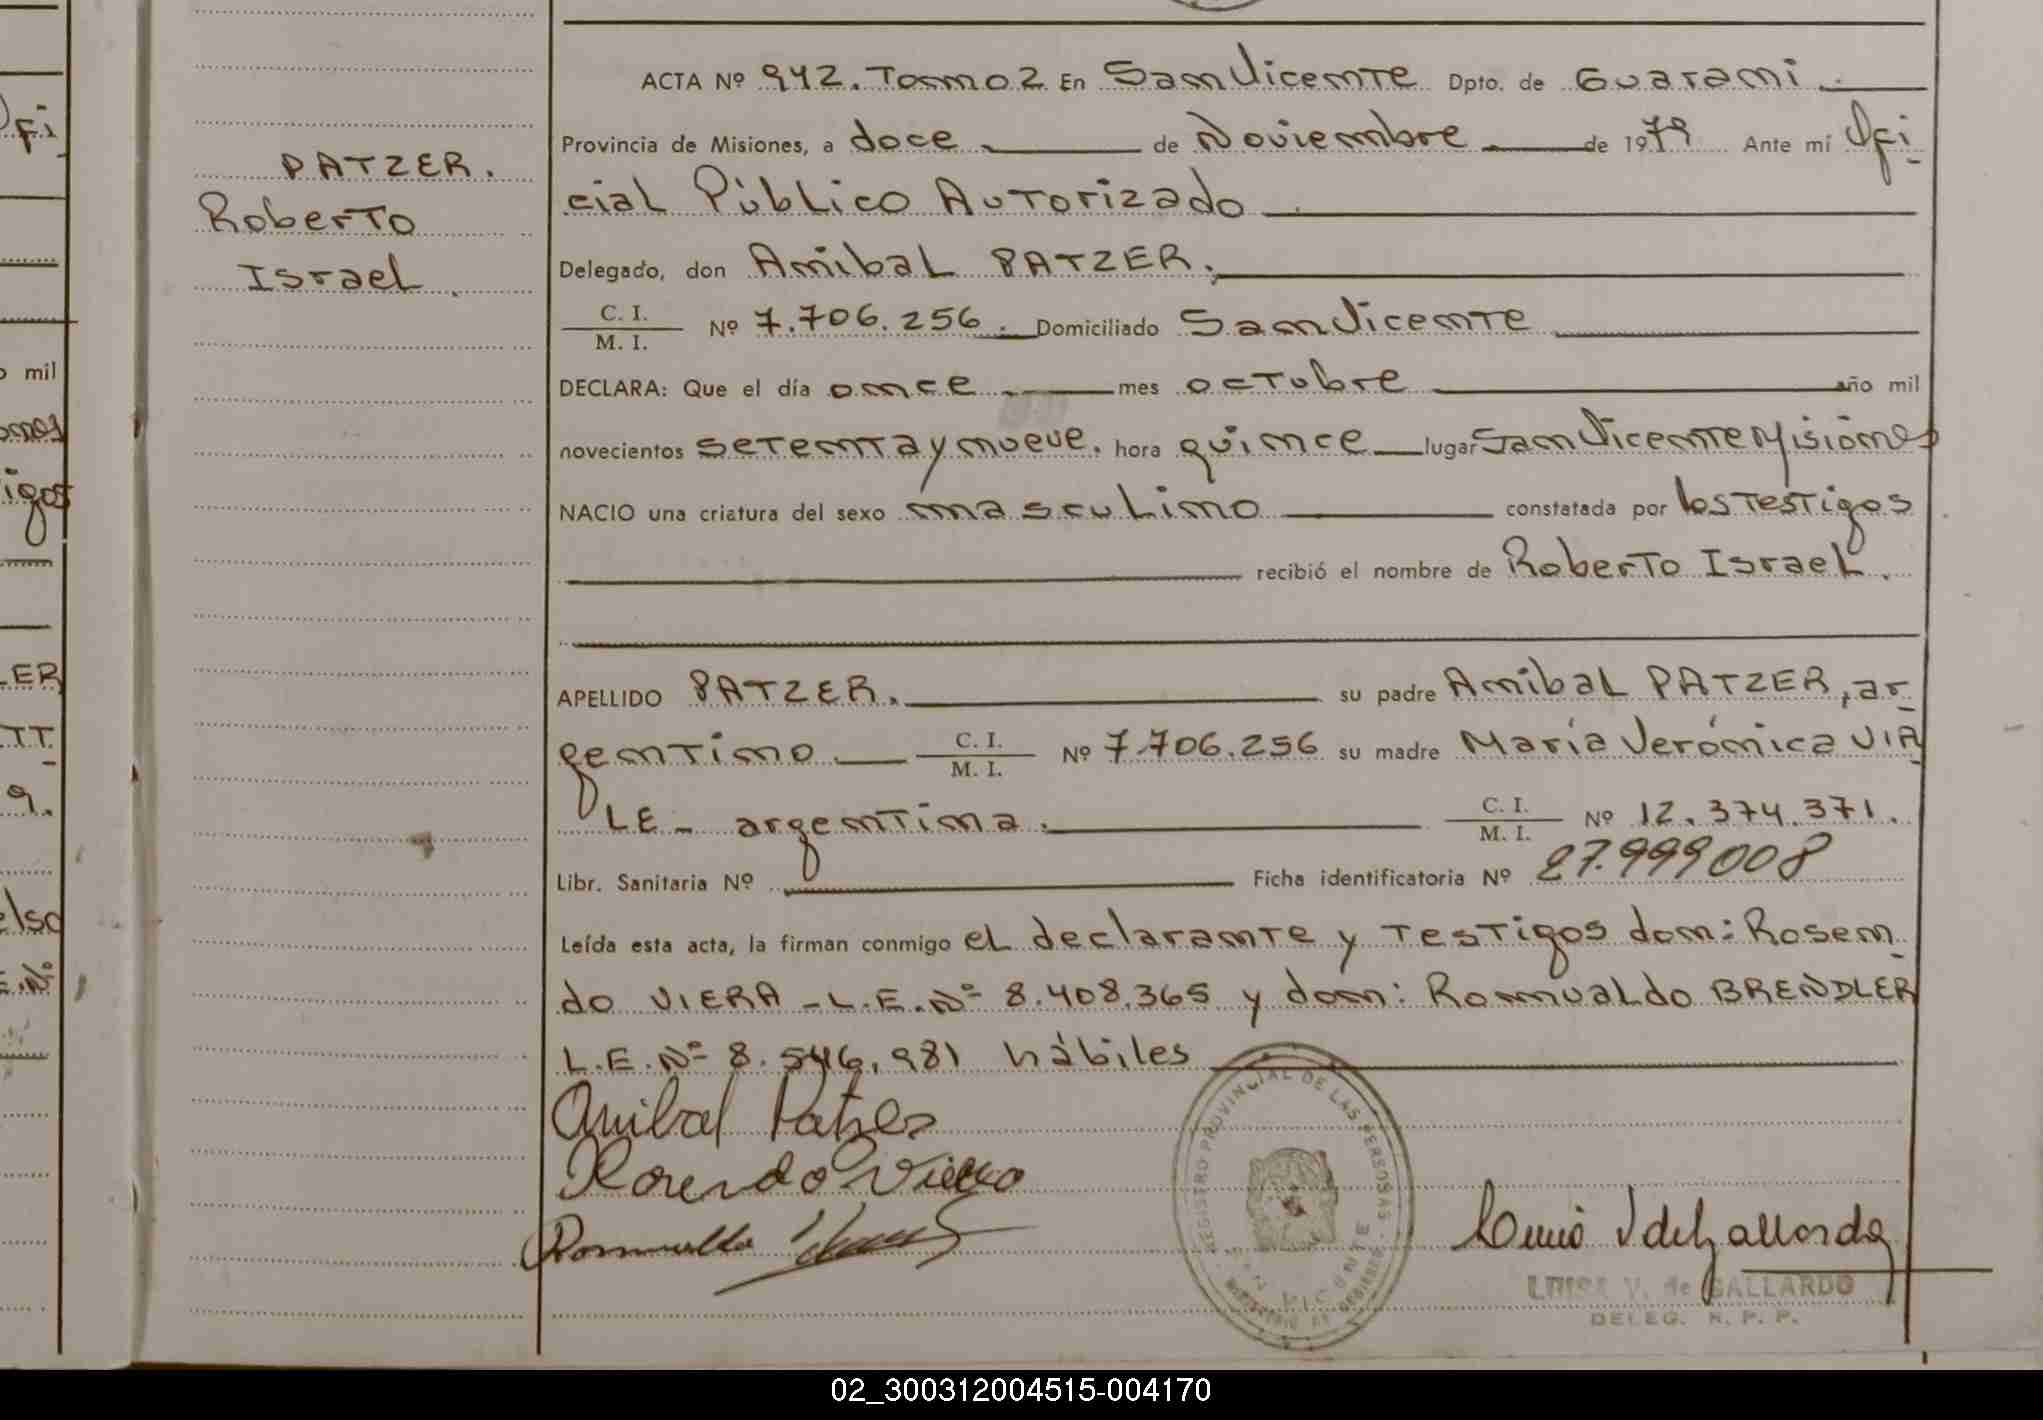 PATZER.
Roberto
Israel.
ACTA Nº 942. Tomo 2 En San Vicente Dpto. de Guaraní.
Provincia de Misiones, a doce de Noviembre de 1979 Ante mí Ofi
cial Público Autorizado
Delegado, don Anibal PATZER.
C. I.
M. I.
Nº 7.706.256. Domiciliado San Vicente
DECLARA: Que el día once mes octubre año mil
novecientos setenta y nueve. hora quince lugar San Vicente Misiones
NACIO una criatura del sexo masculino constatada por los Testigos
recibió el nombre de Roberto Israel.
APELLIDO PATZER. su padre Anibal PATZER, ar
gentino C. I. M. I. Nº 7.706.256 su madre María Verónica VIA
LE - argentina. C. I. M. I. Nº 12.374.371.
Libr. Sanitaria Nº Ficha identificatoria Nº 27.999008
Leída esta acta, la firman conmigo el declarante y Testigos don: Rosen
do VIERA - L.E.Nº 8.408.365 y don: Romualdo BRENDLER
L.E.Nº 8.546.981 hábiles
Anibal Patzer
Rosendo Viera
Romualdo
REGISTRO PROVINCIAL DE LAS PERSONAS
SAN VICENTE
MINISTERIO DE GOBIERNO
LUISA V. de GALLARDO
DELEG. R. P. P.
ofi
o mil
ones
igos
LER
TT
9.
elso
E.Nº
02_300312004515-004170